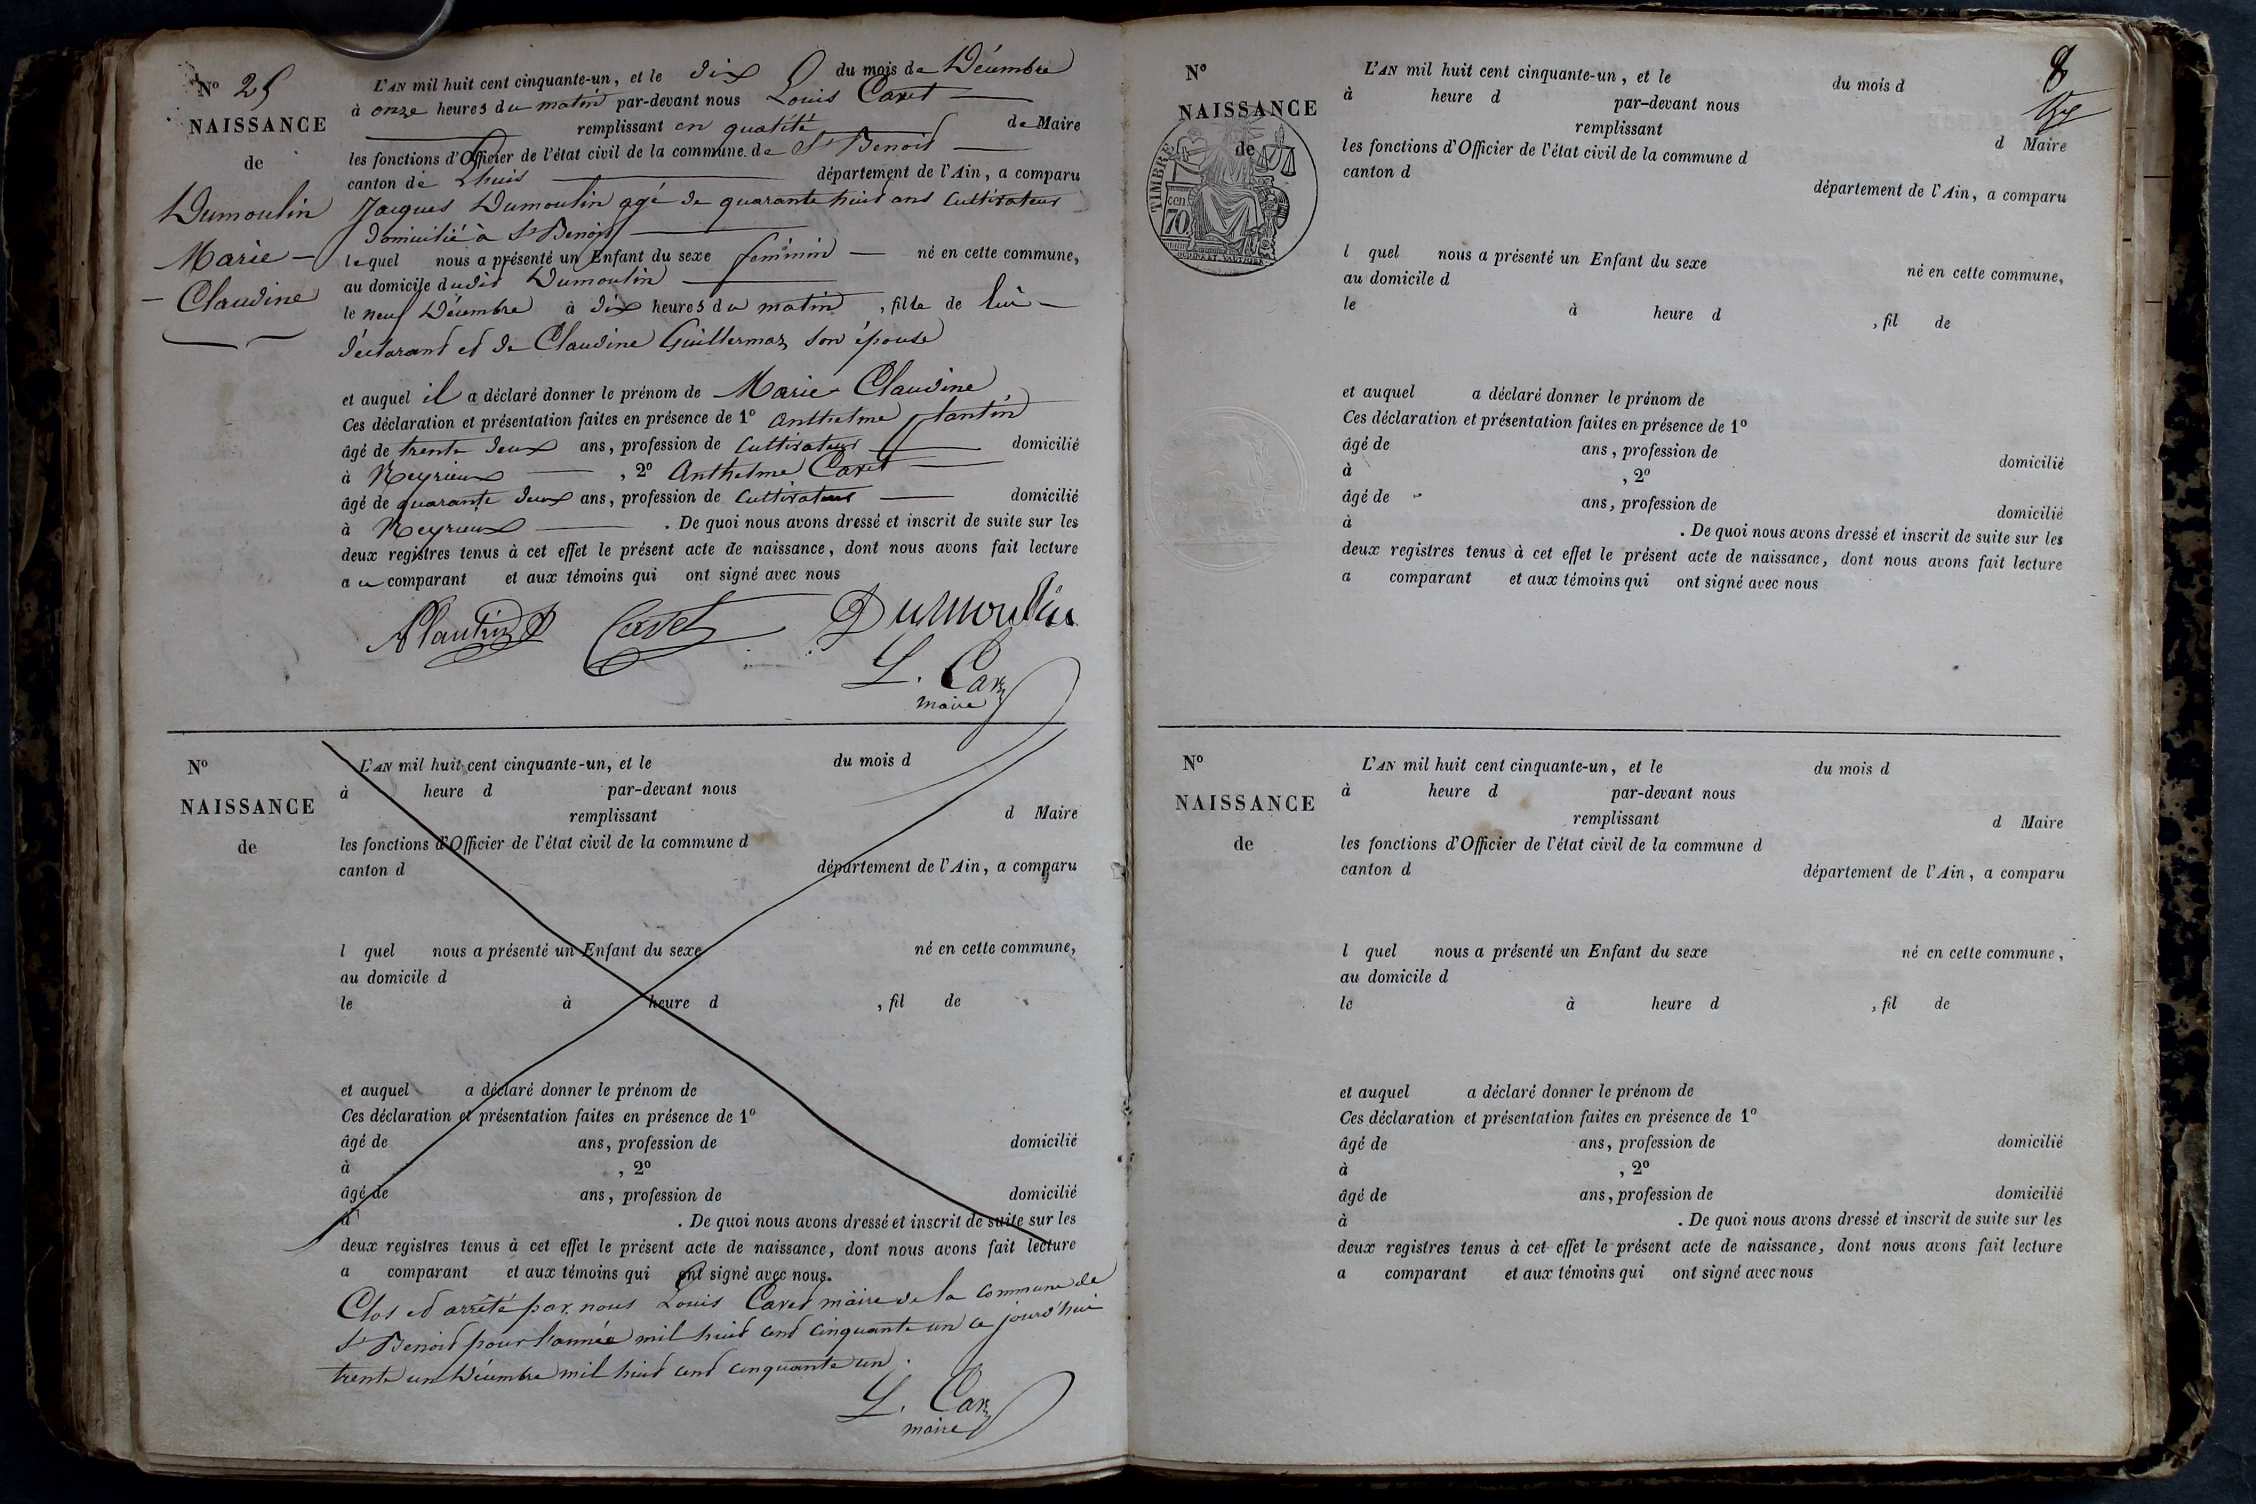 N° 25
NAISSANCE
de
Dumoulin
Marie –
– Claudine
L'AN mil huit cent cinquante-un, et le dix du mois de Décembre
à onze heures du matin par-devant nous Louis Caret
remplissant en qualité de Maire
les fonctions d'Officier de l'état civil de la commune de St Benoit
canton de Lhuis département de l'Ain, a comparu
Jacques Dumoulin agé de quarante huit ans Cultivateur
domicilié à St Benoit
lequel nous a présenté un Enfant du sexe féminin né en cette commune,
au domicile dudit Dumoulin
le neuf Décembre à dix heures du matin, fille de lui
déclarant et de Claudine Guillermaz son épouse
et auquel il a déclaré donner le prénom de Marie Claudine
Ces déclaration et présentation faites en présence de 1° Anthelme Plantin
âgé de trente deux ans, profession de Cultivateur domicilié
à Neyrieux, 2° Anthelme Caret
âgé de quarante deux ans, profession de Cultivateur domicilié
à Neyrieux. De quoi nous avons dressé et inscrit de suite sur les
deux registres tenus à cet effet le présent acte de naissance, dont nous avons fait lecture
au comparant et aux témoins qui ont signé avec nous
Plantin Caret Dumoulin
L. Caret
maire
N°
NAISSANCE
de
L'AN mil huit cent cinquante-un, et le du mois d
à heure d par-devant nous
remplissant d Maire
les fonctions d'Officier de l'état civil de la commune d
canton d département de l'Ain, a comparu
l quel nous a présenté un Enfant du sexe né en cette commune,
au domicile d
le à heure d , fil de
et auquel a déclaré donner le prénom de
Ces déclaration et présentation faites en présence de 1°
âgé de ans, profession de domicilié
à , 2°
âgé de ans, profession de domicilié
à . De quoi nous avons dressé et inscrit de suite sur les
deux registres tenus à cet effet le présent acte de naissance, dont nous avons fait lecture
a comparant et aux témoins qui ont signé avec nous.
Clos et arrêté par nous Louis Caret maire de la commune de
St Benoit pour l'année mil huit cent cinquante un ce jourd'hui
trente un Décembre mil huit cent cinquante un.
L. Caret
maire
8
N°
NAISSANCE
de
TIMBRE
cen.
70
L'AN mil huit cent cinquante-un, et le du mois d
à heure d par-devant nous
remplissant d Maire
les fonctions d'Officier de l'état civil de la commune d
canton d département de l'Ain, a comparu
l quel nous a présenté un Enfant du sexe né en cette commune,
au domicile d
le à heure d , fil de
et auquel a déclaré donner le prénom de
Ces déclaration et présentation faites en présence de 1°
âgé de ans, profession de domicilié
à , 2°
âgé de ans, profession de domicilié
à . De quoi nous avons dressé et inscrit de suite sur les
deux registres tenus à cet effet le présent acte de naissance, dont nous avons fait lecture
a comparant et aux témoins qui ont signé avec nous
N°
NAISSANCE
de
L'AN mil huit cent cinquante-un, et le du mois d
à heure d par-devant nous
remplissant d Maire
les fonctions d'Officier de l'état civil de la commune d
canton d département de l'Ain, a comparu
l quel nous a présenté un Enfant du sexe né en cette commune,
au domicile d
le à heure d , fil de
et auquel a déclaré donner le prénom de
Ces déclaration et présentation faites en présence de 1°
âgé de ans, profession de domicilié
à , 2°
âgé de ans, profession de domicilié
à . De quoi nous avons dressé et inscrit de suite sur les
deux registres tenus à cet effet le présent acte de naissance, dont nous avons fait lecture
a comparant et aux témoins qui ont signé avec nous